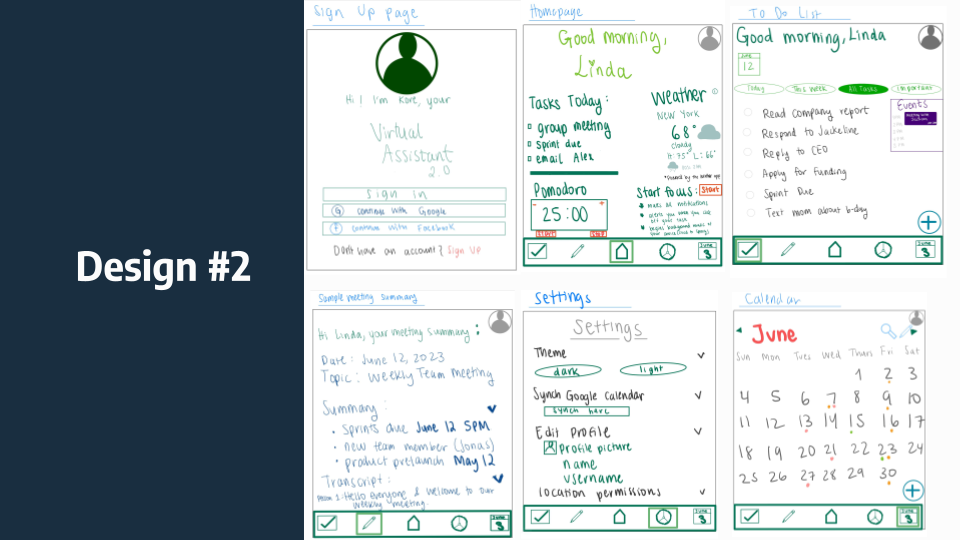 Design #2
Sign Up page
Hi! I'm Kore, your
Virtual
Assistant
2.0
Sign in
G continue with Google
f continue with Facebook
Don't have an account? Sign Up
Homepage
Good morning,
Linda
Tasks Today:
group meeting
Sprint due
email Alex
Weather
NEW YORK
68°
cloudy
H: 75° L: 66°
Pomodoro
- +
25:00
Start focus: Start
mutes all notifications
alerts you when you get
off your task
June
3
To Do List
Good morning, Linda
June
12
Today This Week All Tasks Important
Read company report
Respond to Jackeline
Reply to CEO
Apply for Funding
Sprint Due
Text mom about b-day
Events
+
June
3
Sample meeting summary
Hi Linda, your meeting summary:
Date: June 12, 2023
Topic: Weekly Team Meeting
Summary:
• Sprints due June 12 5PM
• new team member (Jonas)
• product prelaunch May 12
Transcript:
Hello everyone & welcome to our
weekly meeting.
June
3
Settings
Settings
Theme
dark light
Synch Google Calendar
synch here
Edit Profile
Profile picture
name
username
location permissions
June
3
Calendar
June
Sun Mon Tues Wed Thurs Fri Sat
1 2 3
4 5 6 7 8 9 10
11 12 13 14 15 16 17
18 19 20 21 22 23 24
25 26 27 28 29 30
+
June
3